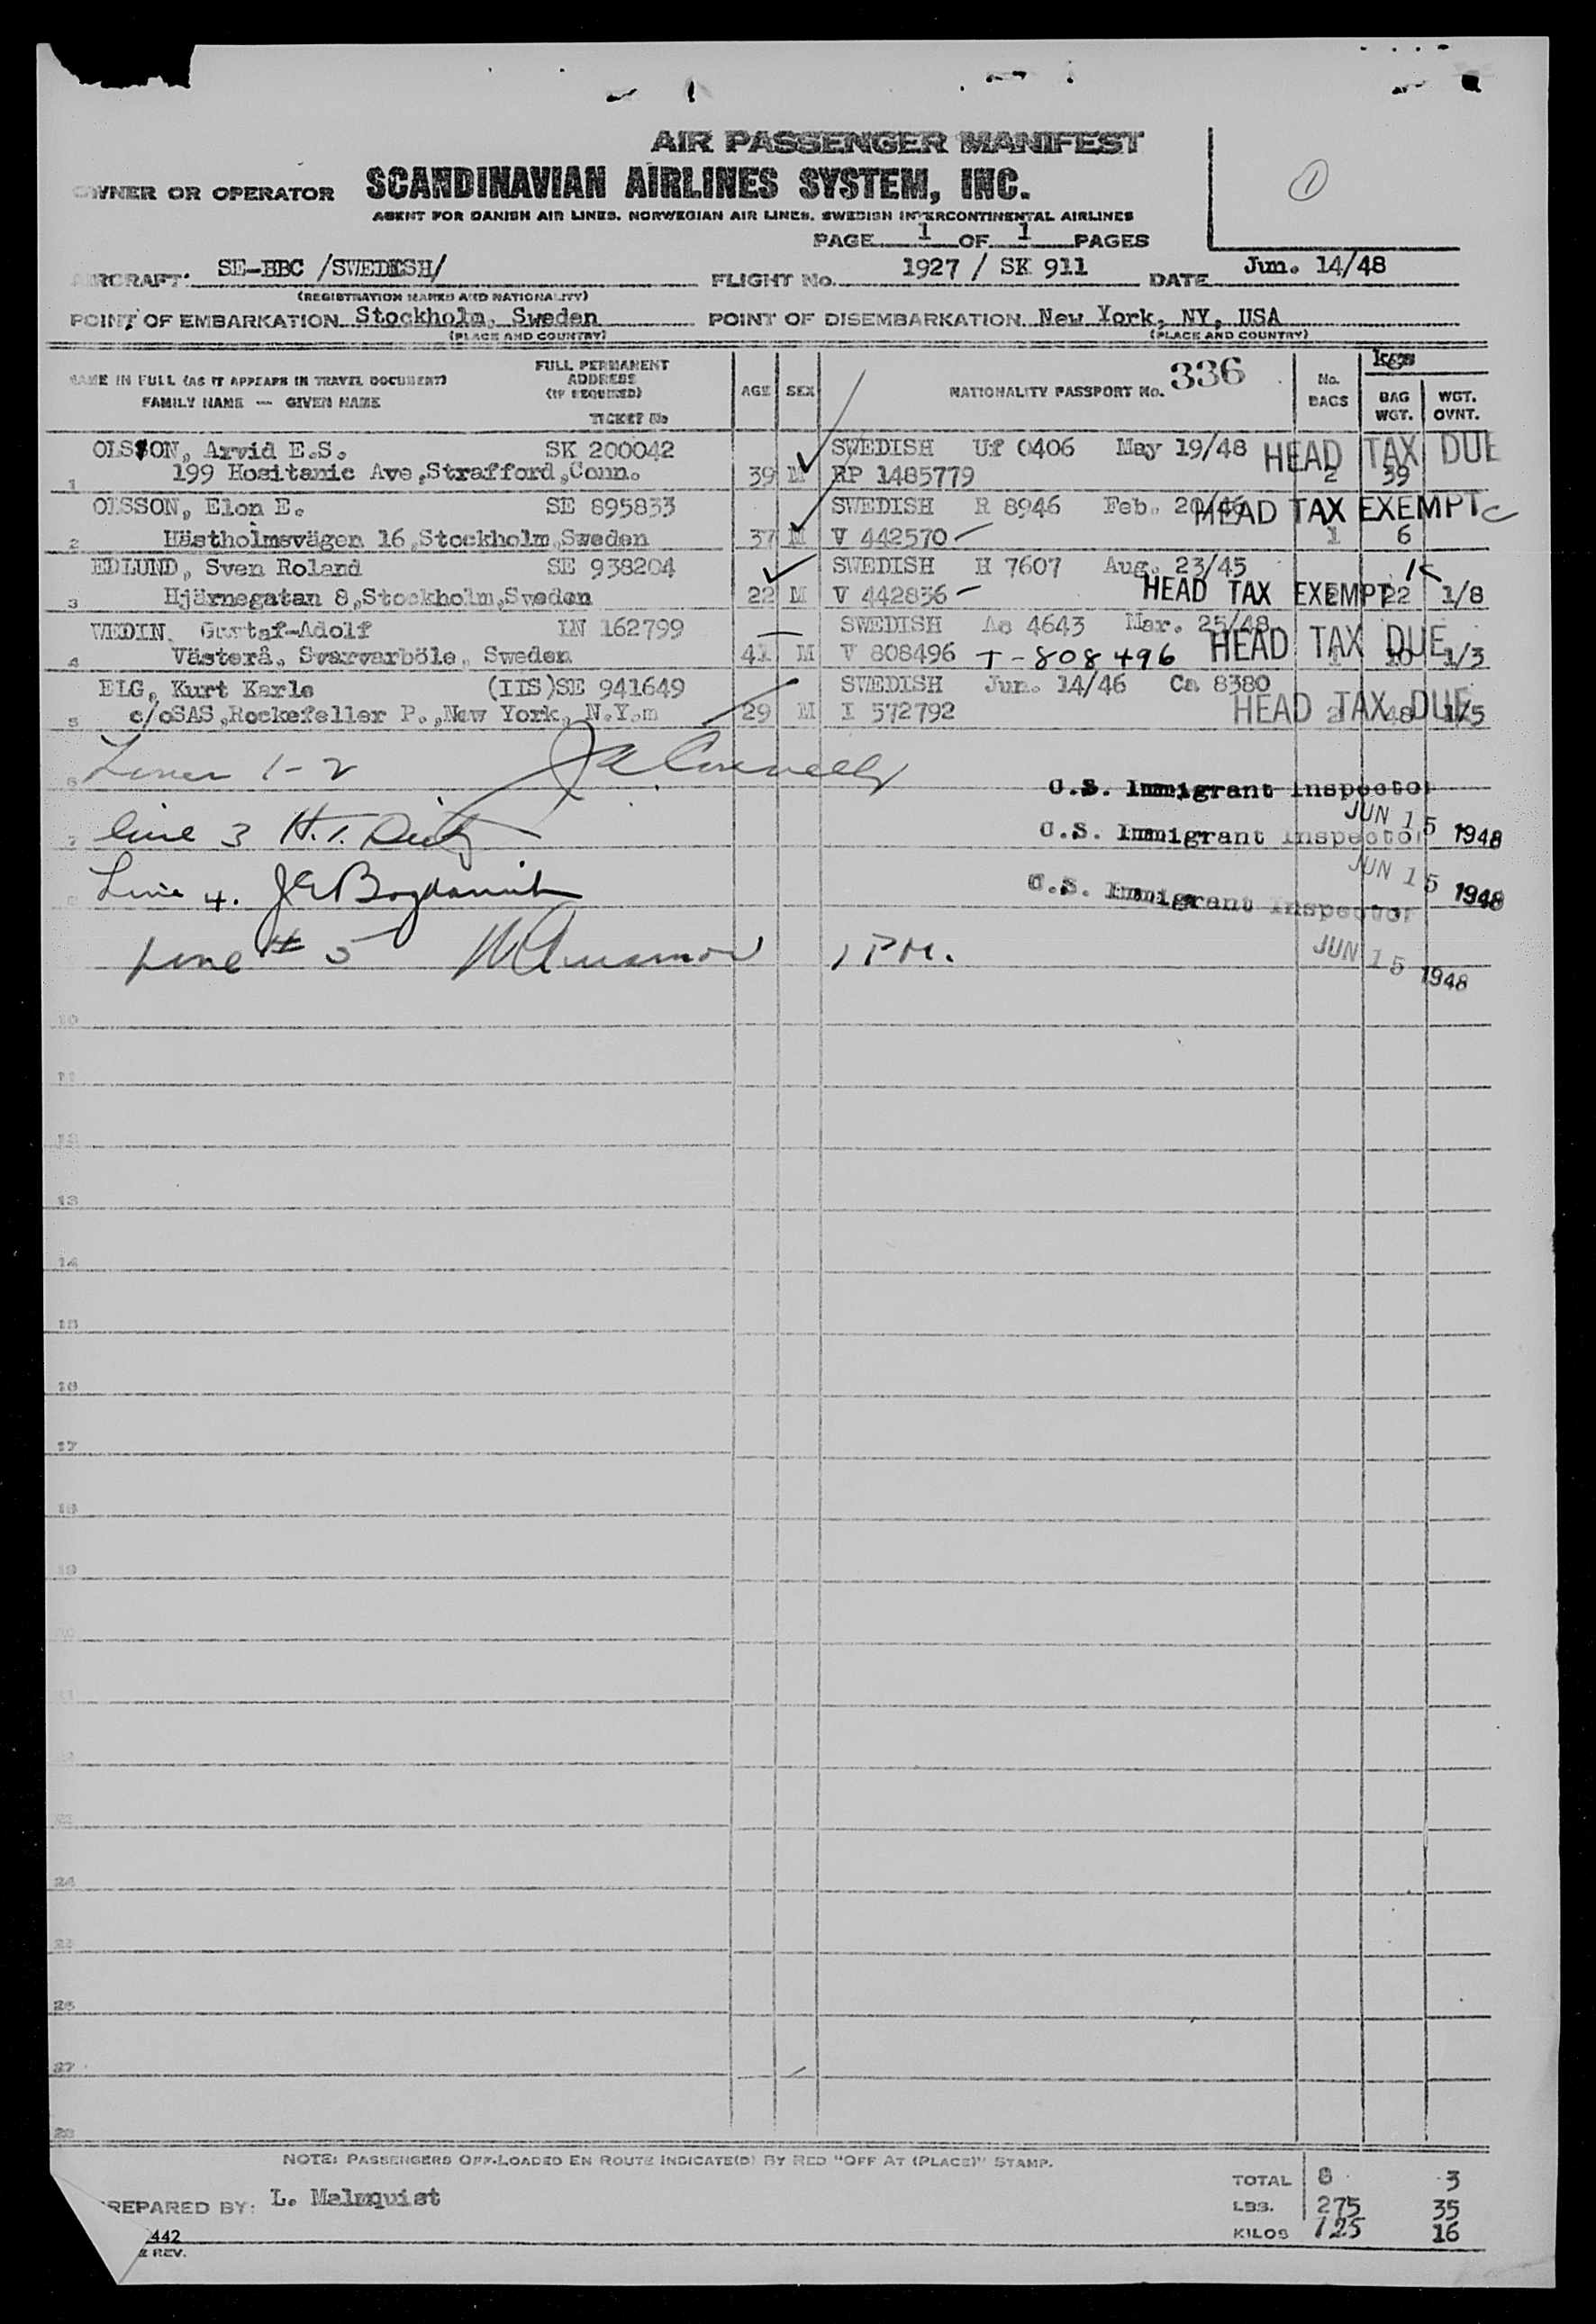 AIR PASSENGER MANIFEST
OWNER OR OPERATOR SCANDINAVIAN AIRLINES SYSTEM, INC.
AGENT FOR DANISH AIR LINES, NORWEGIAN AIR LINES, SWEDISH INTERCONTINENTAL AIRLINES
1
PAGE 1 OF 1 PAGES
AIRCRAFT: SE-BBC /SWEDISH/ FLIGHT No. 1927 / SK 911 DATE Jun. 14/48
(REGISTRATION MARKS AND NATIONALITY)
POINT OF EMBARKATION Stockholm, Sweden POINT OF DISEMBARKATION New York, NY, USA
(PLACE AND COUNTRY) (PLACE AND COUNTRY)
NAME IN FULL (AS IT APPEARS IN TRAVEL DOCUMENT)
FAMILY NAME — GIVEN NAME
FULL PERMANENT
ADDRESS
(IF REQUIRED)
TICKET No
AGE SEX NATIONALITY PASSPORT No. 336 No. BAGS kgs BAG WGT. WGT. OVNT.
OLSSON, Arvid E.S. SK 200042 SWEDISH Uf 0406 May 19/48 HEAD TAX DUE
1 199 Hositanic Ave,Strafford,Conn. 39 M RP 1485779 2 39
OLSSON, Elon E. SE 895833 SWEDISH R 8946 Feb. 20/46 HEAD TAX EXEMPT C
2 Hästholmsvägen 16,Stockholm,Sweden 37 M V 442570 1 6
EDLUND, Sven Roland SE 938204 SWEDISH H 7607 Aug. 23/45
3 Hjärnegatan 8,Stockholm,Sweden 22 M V 442836 HEAD TAX EXEMPT 22 1/8
WEDIN, Gustaf-Adolf IN 162799 SWEDISH As 4643 Mar. 25/48
4 Västerå, Svarvarböle, Sweden 41 M V 808496 T-808496 HEAD TAX DUE 1 10 1/3
ELG, Kurt Karle (IIS)SE 941649 SWEDISH Jun. 14/46 Ca 8380
5 c/oSAS,Rockefeller P.,New York, N.Y.m 29 M I 572792 HEAD TAX DUE 2 48 1/5
6 Lines 1-2 U.S. Immigrant Inspector
JUN 15 1948
7 line 3 H.T. U.S. Immigrant Inspector
JUN 15 1948
8 Line 4. U.S. Immigrant Inspector
Line # 5 1 PM.
JUN 15 1948
10
11
12
13
14
15
16
17
18
19
20
21
22
23
24
25
26
27
28
NOTE: PASSENGERS OFF-LOADED EN ROUTE INDICATE(D) BY RED "OFF AT (PLACE)" STAMP.
TOTAL 8 3
PREPARED BY: L. Malmquist
LBS. 275 35
KILOS 125 16
442
REV.